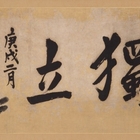 獨立
庚戌二月